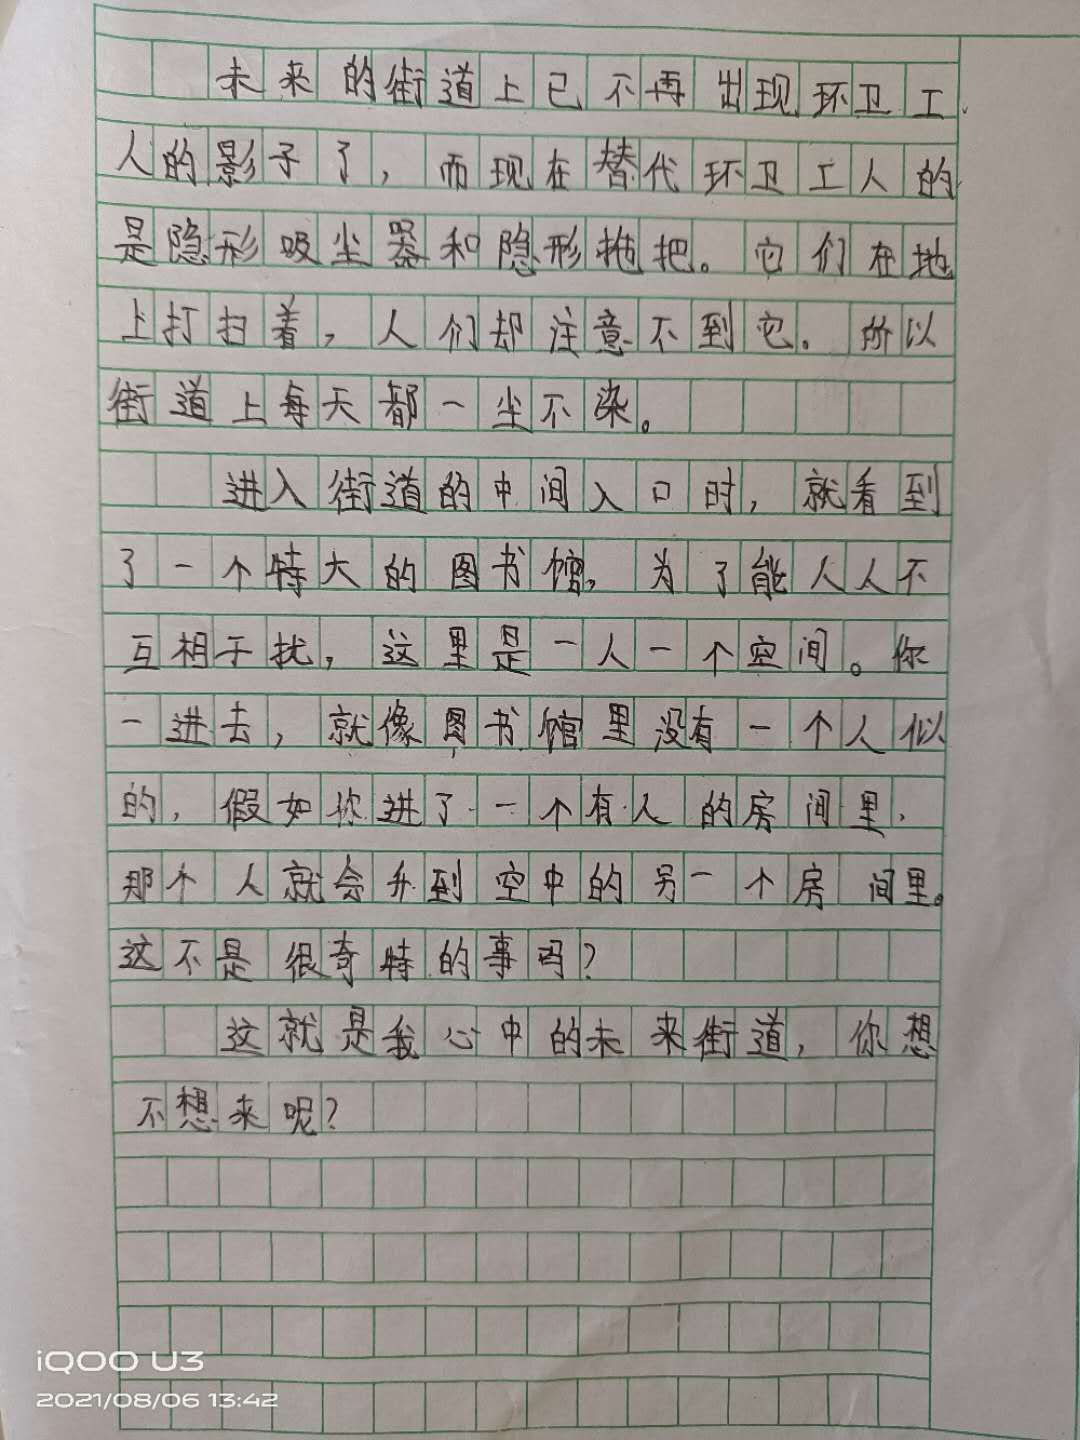 未来的街道上已不再出现环卫工
人的影子了，而现在替代环卫工人的
是隐形吸尘器和隐形拖把。它们在地
上打扫着，人们却注意不到它。所以
街道上每天都一尘不染。
进入街道的中间入口时，就看到
了一个特大的图书馆。为了能人人不
互相干扰，这里是一人一个空间。你
一进去，就像图书馆里没有一个人似
的，假如你进了一个有人的房间里，
那个人就会升到空中的另一个房间里。
这不是很奇特的事吗？
这就是我心中的未来街道，你想
不想来呢？
iQOO U3
2021/08/06 13:42